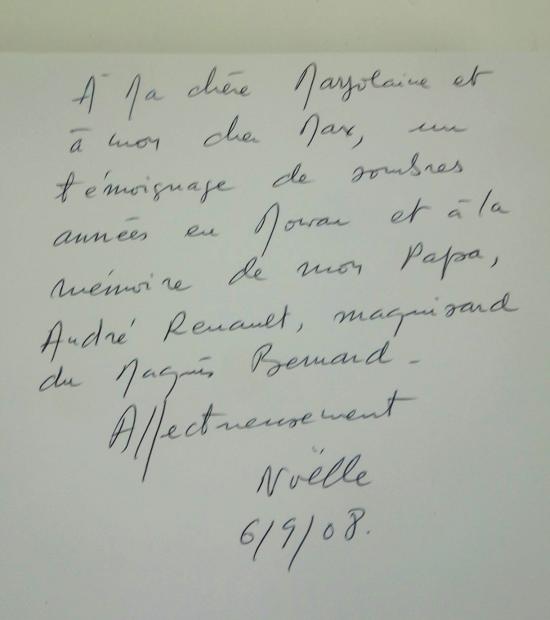 À Ma chère Marjolaine et
à mon cher Max, un
témoignage de sombres
années en Morvan et à la
mémoire de mon Papa,
André Renault, maquisard
du Maquis Bernard -
Affectueusement
Noëlle
6/9/08.